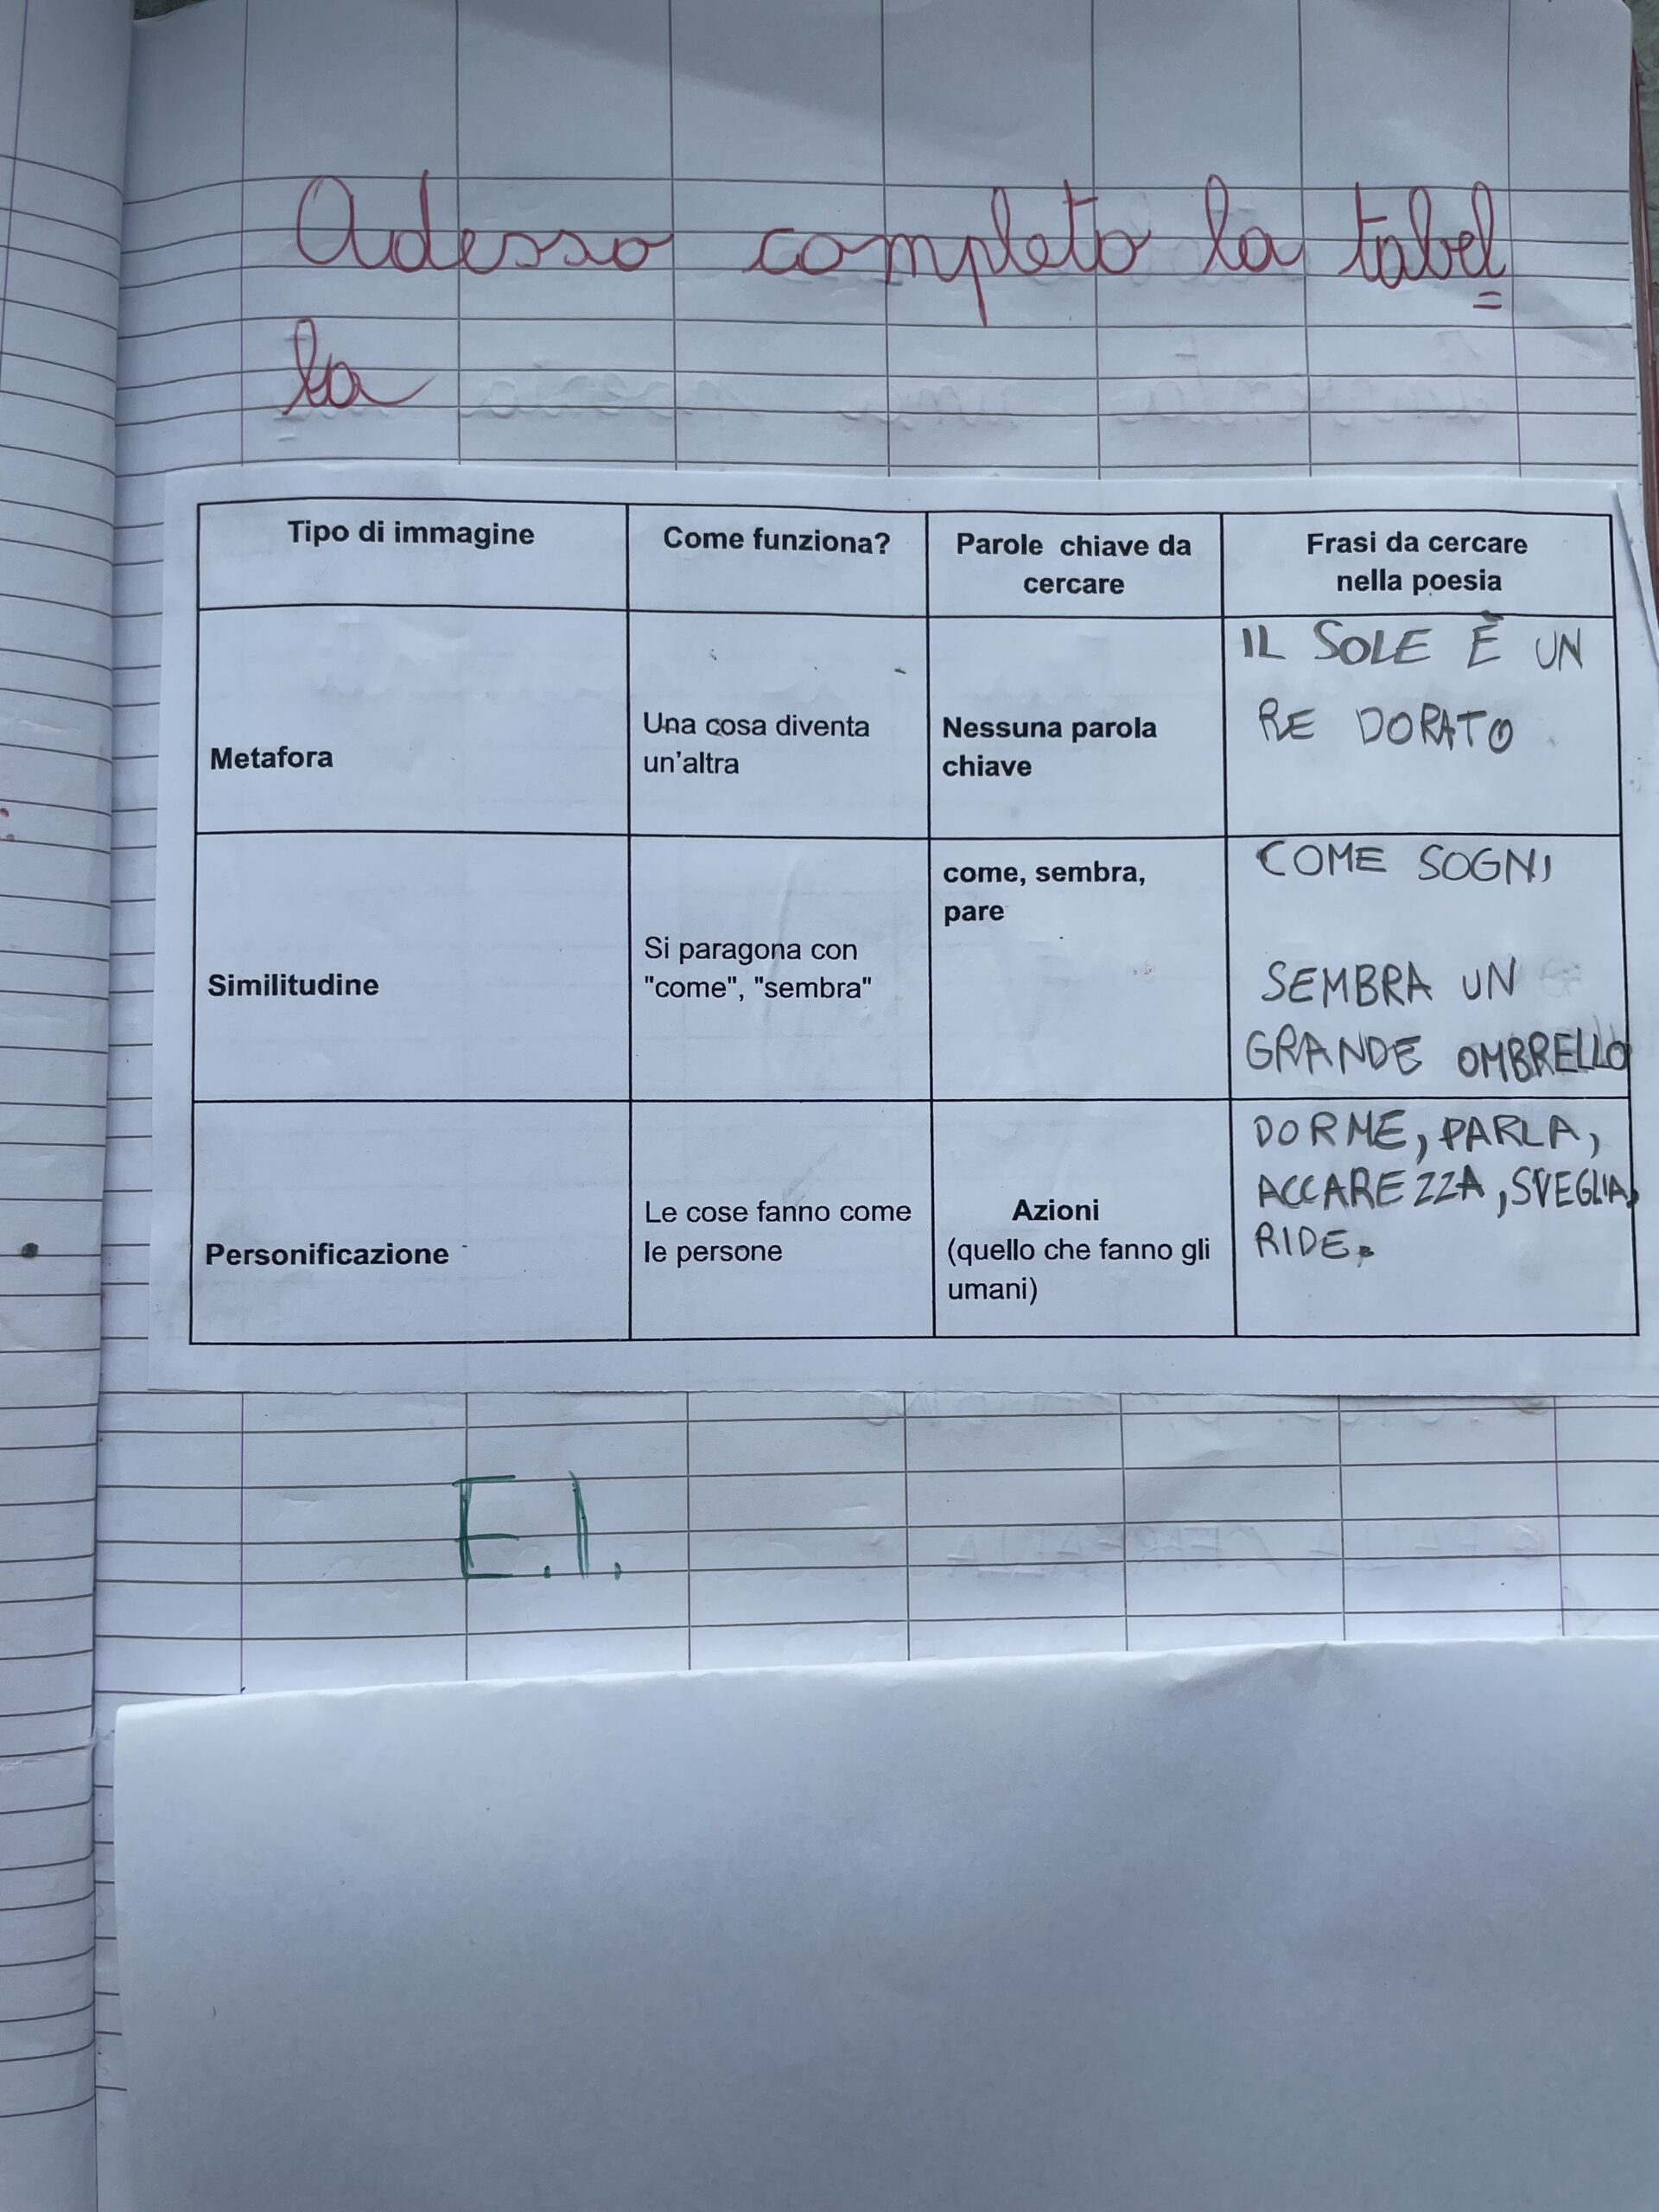 Adesso completo la tabel=
la
Tipo di immagine
Come funziona?
Parole chiave da
cercare
Frasi da cercare
nella poesia
Metafora
Una cosa diventa
un'altra
Nessuna parola
chiave
IL SOLE È UN
RE DORATO
Similitudine
Si paragona con
"come", "sembra"
come, sembra,
pare
COME SOGNI
SEMBRA UN
GRANDE OMBRELLO
Personificazione
Le cose fanno come
le persone
Azioni
(quello che fanno gli
umani)
DORME, PARLA,
ACCAREZZA, SVEGLIA,
RIDE.
E.I.